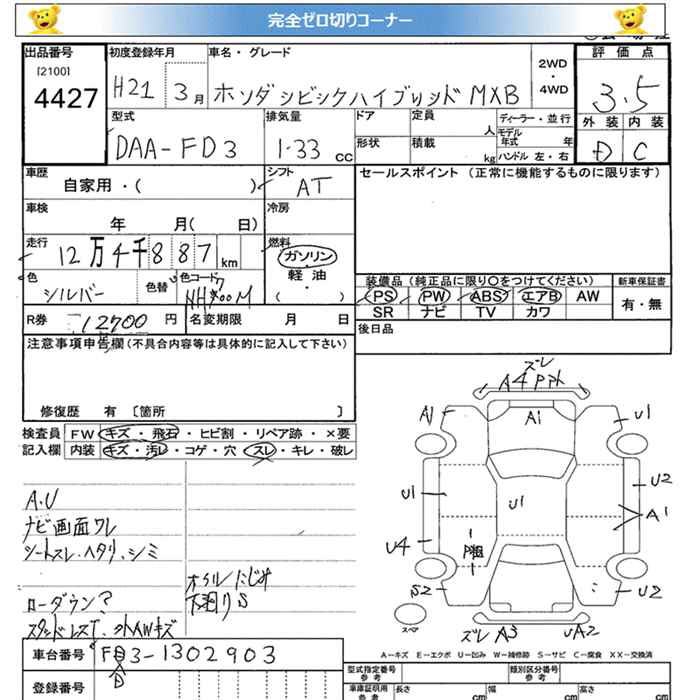 完全ゼロ切りコーナー
出品番号 初度登録年月 車名・グレード 2WD・4WD 評価点
[2100]
4427 H21 3月 ホンダシビックハイブリッド MXB 3.5
型式 排気量 ドア 定員 人 ディーラー・並行 外装 内装
DAA-FD3 1.33 cc 形状 積載 kg モデル年式 年 ハンドル 左・右 D C
車歴 シフト セールスポイント (正常に機能するものに限ります)
自家用・( ) AT
車検 冷房
年 月( 日)
走行 燃料
12万4千887km ガソリン
色 色替 色コード 軽・油
シルバー ( )
装備品 (純正品に限り〇をつけてください) 新車保証書
PS PW ABS エアB AW 有・無
SR ナビ TV カワ
R券 12700 円 名変期限 月 日 後日品
注意事項申告欄(不具合内容等は具体的に記入して下さい)
修復歴 有 [箇所 ]
検査員 FW キズ・飛石・ヒビ割・リペア跡・×要
記入欄 内装 キズ・汚レ・コゲ・穴 スレ・キレ・破レ
A.U
ナビ画面ワレ
シートスレ、ヘタリ、シミ
オイルにじみ
下廻りS
ローダウン?
ズレ
A4
A1 A1 U1
U1 U1 U2
A1
U4
S2 U2
スペア
ズレ A3 UA2
A-キズ E-エクボ U-凹み W-補修跡 S-サビ C-腐食 XX-交換済
車台番号 FD3-1302903
登録番号
型式指定番号 参考 類別区分番号 参考
車庫証明用 参考 長さ cm 幅 cm 高さ cm